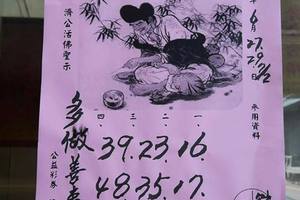 濟公活佛聖示
年6月27.29.日
參用資料
多做善事
公益彩券
四、三、二、一、
39.23.16.
48.35.17.